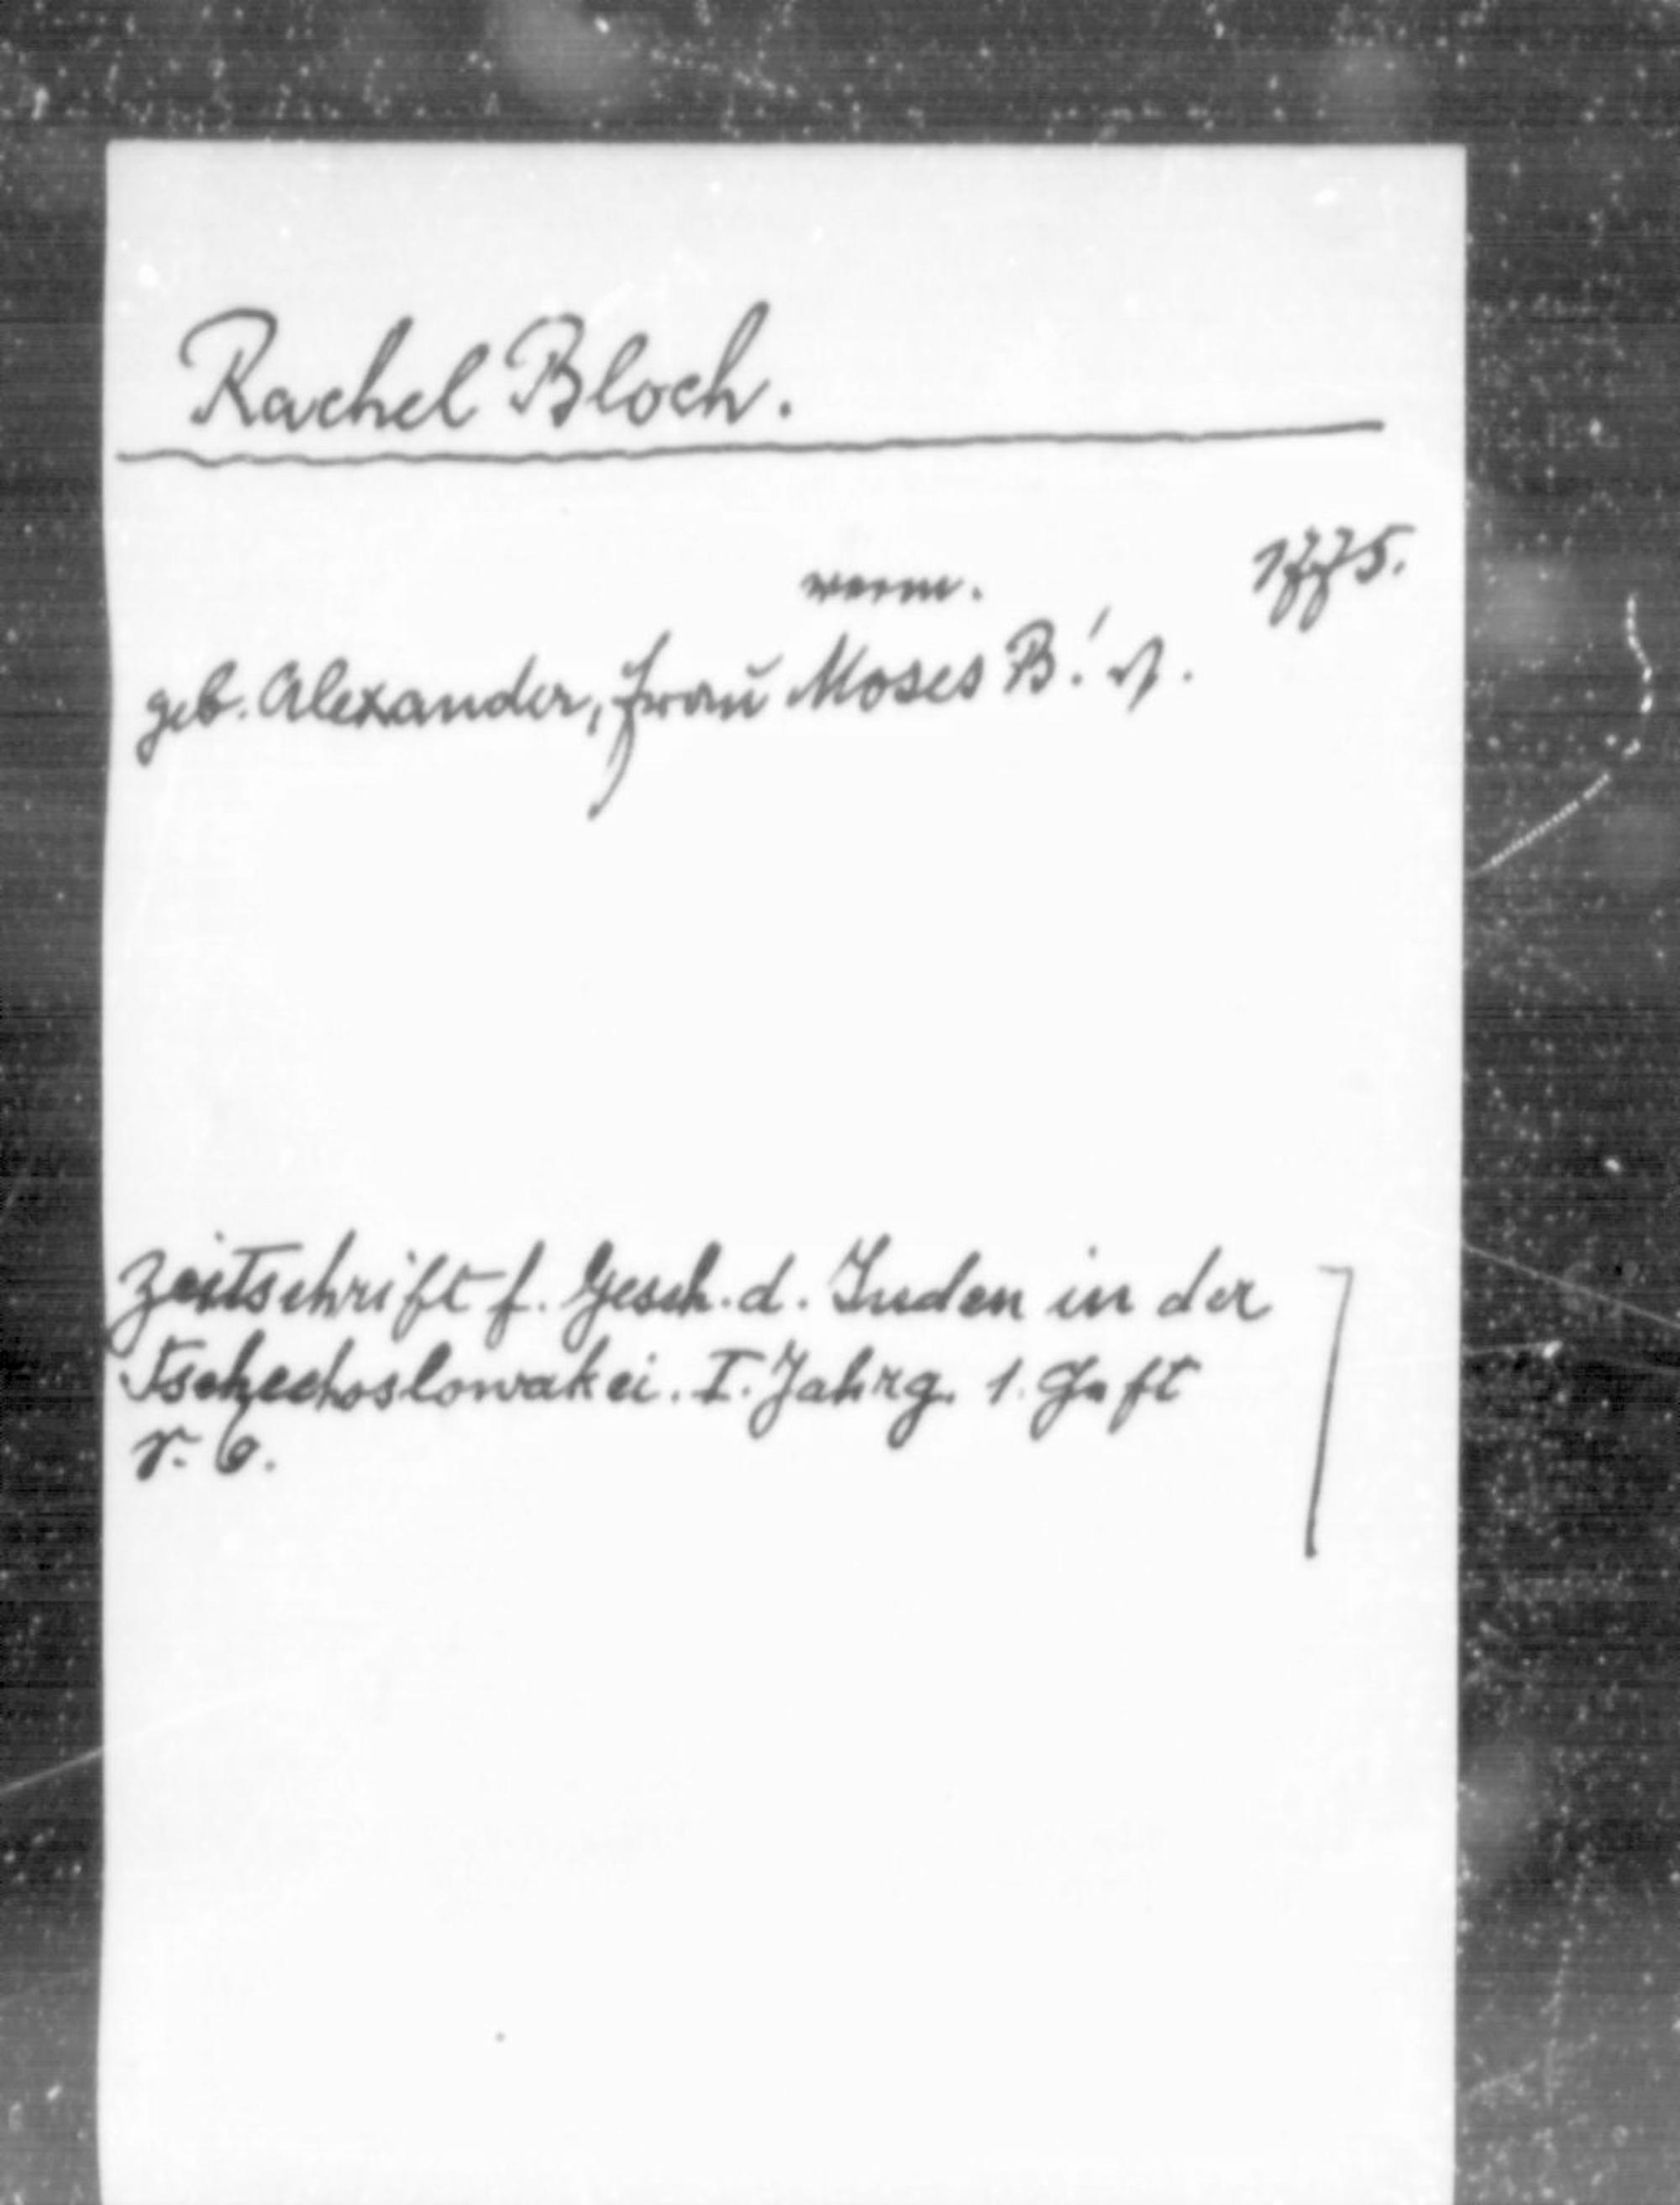 Rachel Bloch.
1775.
verm.
geb. Alexander, Frau Moses B.'s.
Zeitschrift f. Gesch. d. Juden in der
Tschechoslowakei. I. Jahrg. 1. Heft
S. 6.